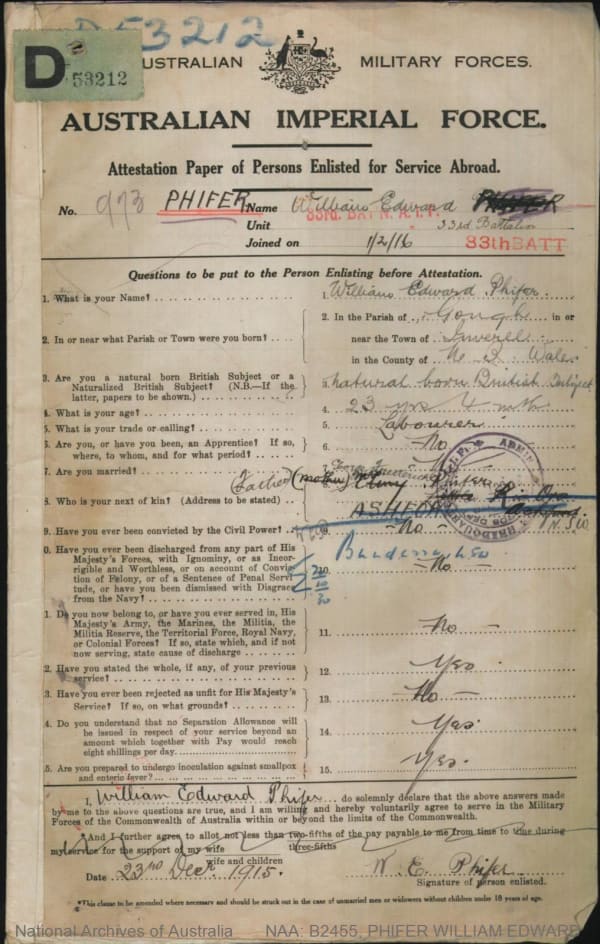 D53212
D 53212
AUSTRALIAN MILITARY FORCES.
AUSTRALIAN IMPERIAL FORCE.
Attestation Paper of Persons Enlisted for Service Abroad.
No. 973 PHIFER Name William Edward PHIFER
33RD. BATTN. A.I.F.
Unit 33rd Battalion
Joined on 1/2/16 33thBATT
Questions to be put to the Person Enlisting before Attestation.
1. What is your Name? 1. William Edward Phifer
2. In or near what Parish or Town were you born? 2. In the Parish of Gough in or
near the Town of Inverell
in the County of N. S. Wales
3. Are you a natural born British Subject or a
Naturalized British Subject? (N.B.—If the
latter, papers to be shown.) 3. natural born British Subject
4. What is your age? 4. 23 yrs 4 mth
5. What is your trade or calling? 5. Labourer
6. Are you, or have you been, an Apprentice? If so,
where, to whom, and for what period? 6. No
7. Are you married? 7.
8. Who is your next of kin? (Address to be stated) (Father) (mother) Phifer
ASHFORD
N.S.W
9. Have you ever been convicted by the Civil Power? 9. No
0. Have you ever been discharged from any part of His
Majesty's Forces, with Ignominy, or as Incor-
rigible and Worthless, or on account of Convic-
tion of Felony, or of a Sentence of Penal Servi-
tude, or have you been dismissed with Disgrace
from the Navy? 10. No
1. Do you now belong to, or have you ever served in, His
Majesty's Army, the Marines, the Militia, the
Militia Reserve, the Territorial Force, Royal Navy,
or Colonial Forces? If so, state which, and if not
now serving, state cause of discharge 11. No
2. Have you stated the whole, if any, of your previous
service? 12. Yes
3. Have you ever been rejected as unfit for His Majesty's
Service? If so, on what grounds? 13. No
4. Do you understand that no Separation Allowance will
be issued in respect of your service beyond an
amount which together with Pay would reach
eight shillings per day. 14. Yes
5. Are you prepared to undergo inoculation against smallpox
and enteric fever? 15. Yes.
I, William Edward Phifer do solemnly declare that the above answers made
by me to the above questions are true, and I am willing and hereby voluntarily agree to serve in the Military
Forces of the Commonwealth of Australia within or beyond the limits of the Commonwealth.
*And I further agree to allot not less than two-fifths of the pay payable to me from time to time during
three-fifths
my service for the support of my wife
wife and children
Date 23rd Decr 1915. W. E. Phifer
Signature of person enlisted.
*This clause to be amended where necessary and should be struck out in the case of unmarried men or widowers without children under 18 years of age.
National Archives of Australia NAA: B2455, PHIFER WILLIAM EDWARD